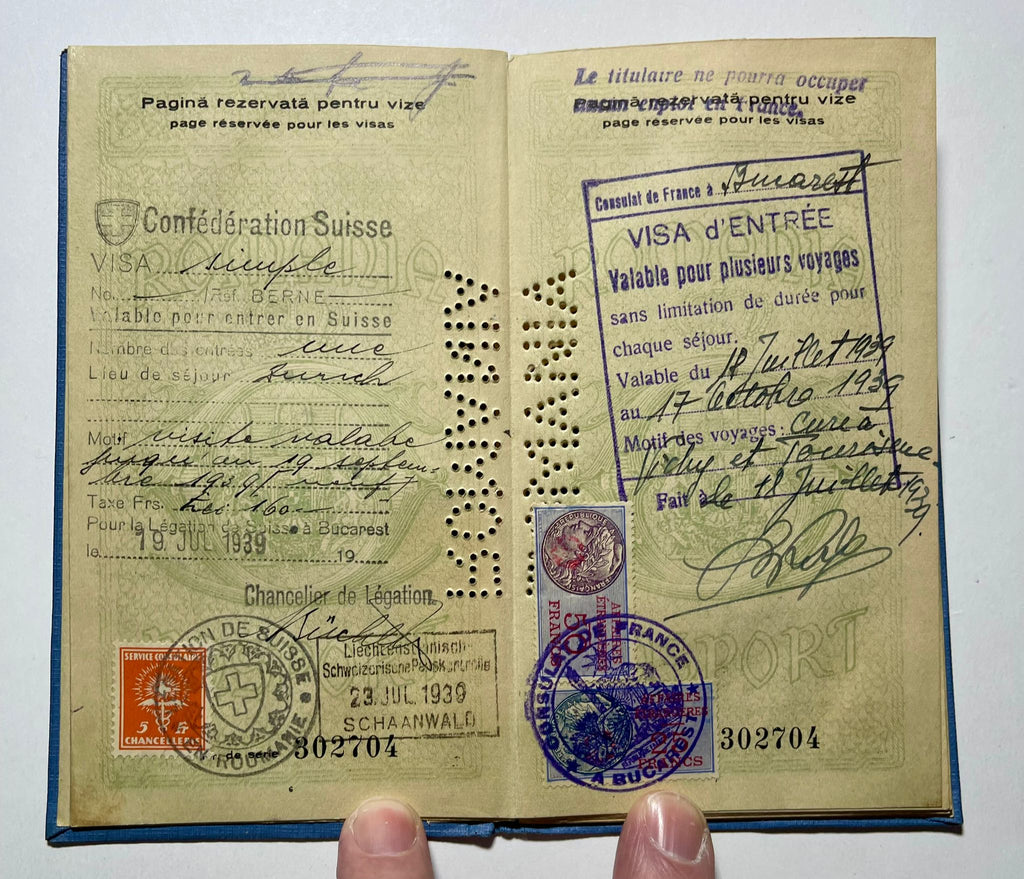 Pagină rezervată pentru vize
page réservée pour les visas
Confédération Suisse
VISA simple
No. /Réf. BERNE
Valable pour entrer en Suisse
Nombre des entrées une
Lieu de séjour Zurich
Motif visite valable
jusqu'au 19 septem-
bre 1939
Taxe Frs. Lei 160.-
Pour la Légation de Suisse à Bucarest
le 19 JUL 1939 19
Chancelier de Légation.
SERVICE CONSULAIRE
5 5
CHANCELLERIE
LEGATION DE SUISSE
EN ROUMANIE
Liechtensteinisch-
Schweizerische Passkontrolle
23. JUL. 1939
SCHAANWALD
de serie 302704
ROMANIA
Le titulaire ne pourra occuper
aucun emploi en France.
Pagină rezervată pentru vize
page réservée pour les visas
ROMANIA
Consulat de France à Bucarest
VISA d'ENTRÉE
Valable pour plusieurs voyages
sans limitation de durée pour
chaque séjour.
Valable du 18 Juillet 1939
au 17 Octobre 1939
Motif des voyages: Cure à
Vichy et Tourisme.
Fait à le 18 Juillet 1939.
REPUBLIQUE FRANÇAISE
AFFAIRES
ETRANGERES
50
FRANCS
CONSULAT DE FRANCE
A BUCAREST
AFFAIRES
ETRANGERES
FRANCS
302704
PASSPORT